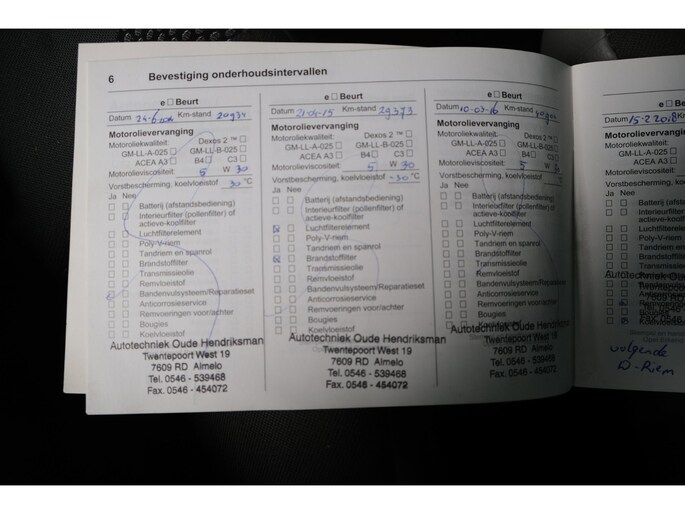 6 Bevestiging onderhoudsintervallen
e □ Beurt
Datum Km-stand
Motorolievervanging
Motoroliekwaliteit: Dexos 2 ™ □
GM-LL-A-025 □ GM-LL-B-025 □
ACEA A3 □ B4 □ C3 □
Motorolieviscositeit: 5 W 30
Vorstbescherming, koelvloeistof 30 °C
Ja Nee
□ □ Batterij (afstandsbediening)
□ □ Interieurfilter (pollenfilter) of
actieve-koolfilter
□ □ Luchtfilterelement
□ □ Poly-V-riem
□ □ Tandriem en spanrol
□ □ Brandstoffilter
□ □ Transmissieolie
□ □ Remvloeistof
□ Bandenvulsysteem/Reparatieset
□ □ Anticorrosieservice
□ □ Remvoeringen voor/achter
□ □ Bougies
□ □ Koelvloeistof
Autotechniek Oude Hendriksman
Twentepoort West 19
7609 RD Almelo
Tel. 0546 - 539468
Fax. 0546 - 454072
e □ Beurt
Datum 21-04-15 Km-stand 29373
Motorolievervanging
Motoroliekwaliteit: Dexos 2 ™ □
GM-LL-A-025 □ GM-LL-B-025 □
ACEA A3 □ B4 □ C3 □
Motorolieviscositeit: 5 W 30
Vorstbescherming, koelvloeistof -30 °C
Ja Nee
□ □ Batterij (afstandsbediening)
□ □ Interieurfilter (pollenfilter) of
actieve-koolfilter
☒ □ Luchtfilterelement
□ □ Poly-V-riem
□ □ Tandriem en spanrol
☒ □ Brandstoffilter
□ □ Transmissieolie
□ □ Remvloeistof
□ □ Bandenvulsysteem/Reparatieset
□ □ Anticorrosieservice
□ □ Remvoeringen voor/achter
□ □ Bougies
□ □ Koelvloeistof
Autotechniek Oude Hendriksman
Twentepoort West 19
7609 RD Almelo
Tel. 0546 - 539468
Fax. 0546 - 454072
e □ Beurt
Datum 10-03-16 Km-stand
Motorolievervanging
Motoroliekwaliteit: Dexos 2 ™ □
GM-LL-A-025 □ GM-LL-B-025 □
ACEA A3 □ B4 □ C3 □
Motorolieviscositeit: 5 W 30
Vorstbescherming, koelvloeistof 30 °C
Ja Nee
□ □ Batterij (afstandsbediening)
□ □ Interieurfilter (pollenfilter) of
actieve-koolfilter
□ □ Luchtfilterelement
□ □ Poly-V-riem
□ □ Tandriem en spanrol
□ □ Brandstoffilter
□ □ Transmissieolie
□ □ Remvloeistof
□ □ Bandenvulsysteem/Reparatieset
□ □ Anticorrosieservice
□ □ Remvoeringen voor/achter
□ □ Bougies
□ □ Koelvloeistof
Autotechniek Oude Hendriksman
Twentepoort West 19
7609 RD Almelo
Tel. 0546 - 539468
Fax. 0546 - 454072
e □ Beurt
Datum 15-2 2018 Km-
Motorolievervanging
Motoroliekwaliteit:
GM-LL-A-025
ACEA A3
Motorolieviscositeit:
Vorstbescherming
Ja Nee
volgende
D-Riem